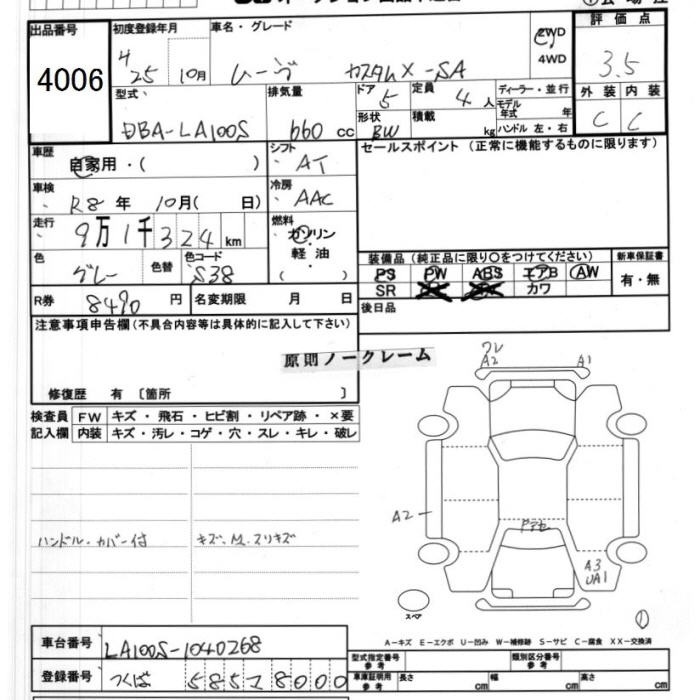 出品番号 初度登録年月 車名・グレード 評価点
4006
4 25 10月 ムーヴ カスタムX-SA 2WD 4WD 3.5
型式 排気量 ドア 定員 ディーラー・並行 外装 内装
DBA-LA100S 660 cc 5 4人 モデル年式 年 C C
形状 BW 積載 kg ハンドル 左・右
車歴 自家用・( ) シフト AT セールスポイント(正常に機能するものに限ります)
車検 R8年 10月( 日) 冷房 AAC
走行 9万1千324km 燃料 ガソリン 軽油 ( )
色 グレー 色替 色コード S38
装備品(純正品に限り○をつけてください) 新車保証書
PS PW ABS エアB AW 有・無
SR カワ
R券 8490円 名変期限 月 日 後日品
注意事項申告欄(不具合内容等は具体的に記入して下さい)
原則ノークレーム
修復歴 有〔箇所 〕
検査員 FW キズ・飛石・ヒビ割・リペア跡・×要
記入欄 内装 キズ・汚レ・コゲ・穴・スレ・キレ・破レ
ハンドル・カバー付 キズ、M、スリキズ
ワレ
A2 A1
A2
A3
UA1
スペア
①
A-キズ E-エクボ U-凹み W-補修跡 S-サビ C-腐食 XX-交換済
車台番号 LA100S-1040268
型式指定番号 参考 類別区分番号 参考
登録番号 つくば 585 ス 8000
車庫証明用 参考 長さ cm 幅 cm 高さ cm